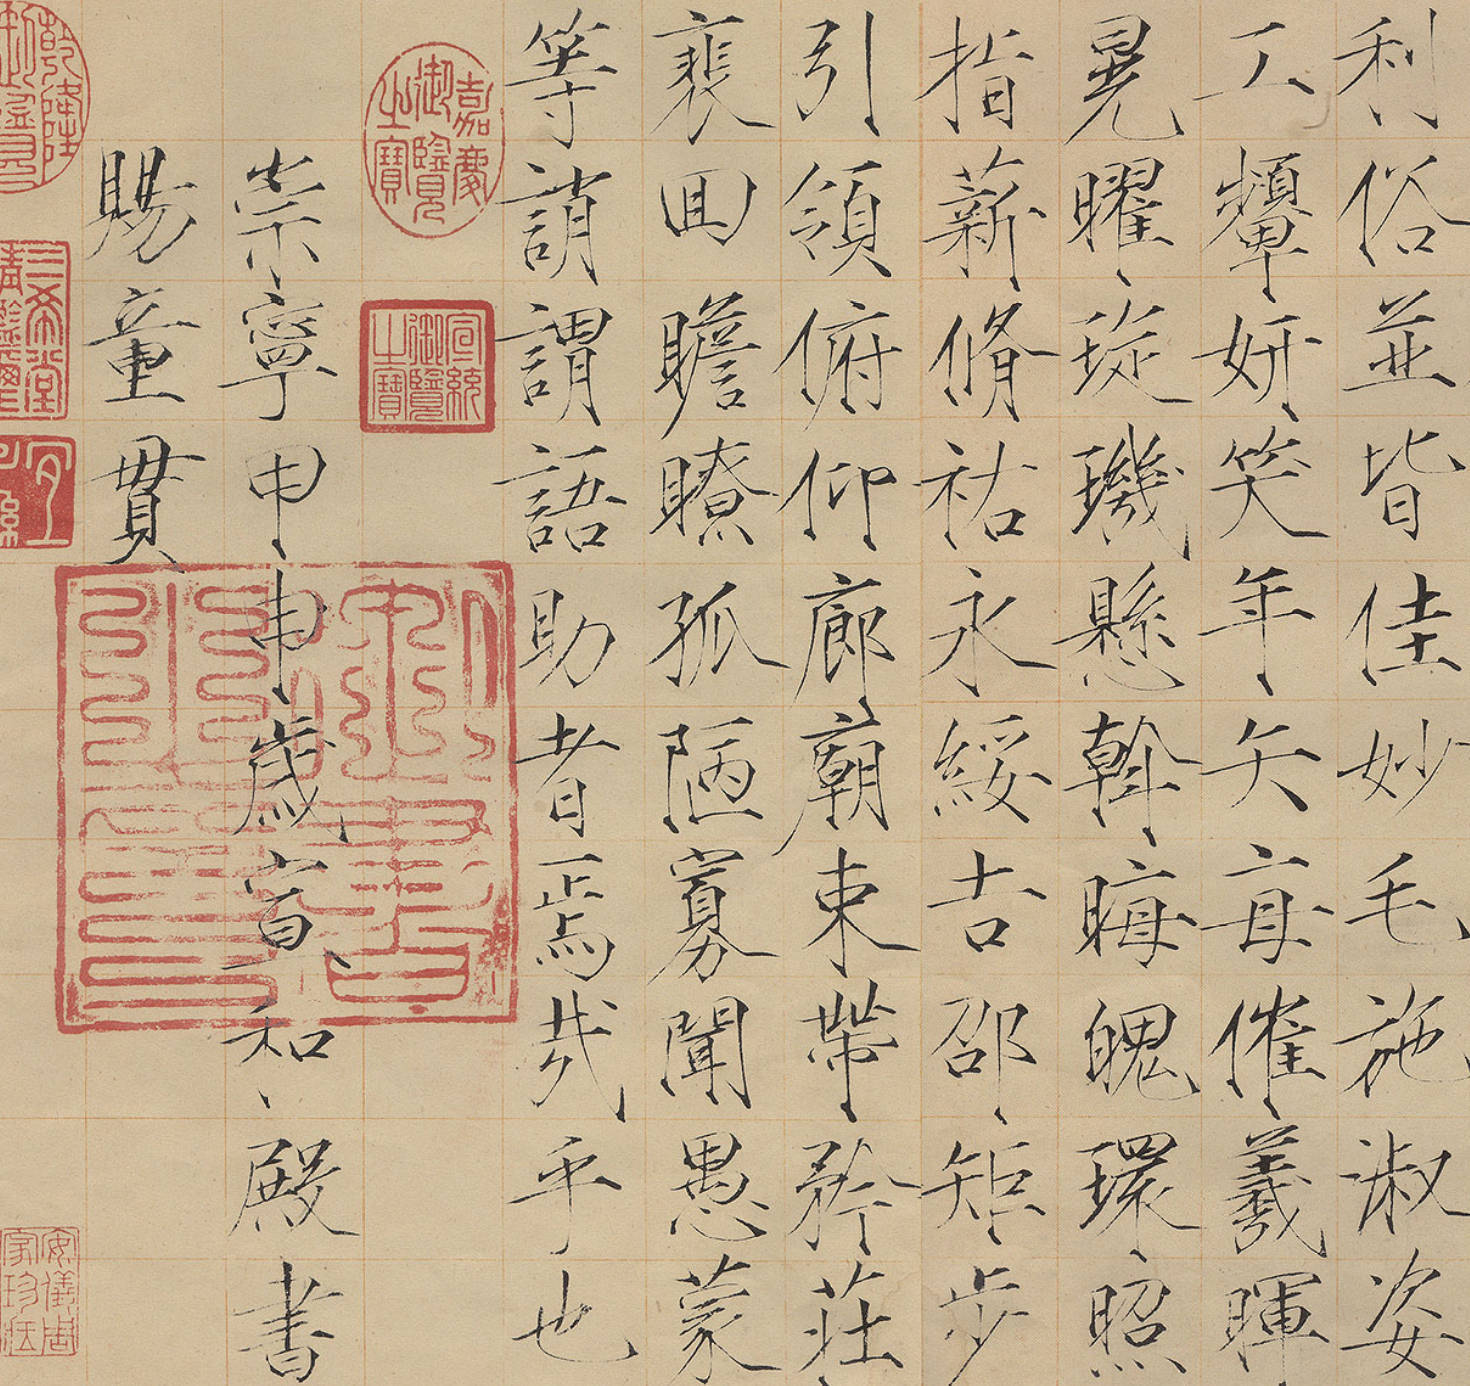 利俗並皆佳妙毛施淑姿
工顰妍笑年矢每催羲暉
晃曜琁璣懸斡晦魄環照
指薪脩祐永綏吉邵矩步
引領俯仰廊廟束帶矜莊
裵囬瞻瞭孤陋寡聞愚蒙
等誚謂語助者焉哉乎也
嘉慶
御覽
之寶
宣統
御覽
之寶
崇寧甲申歲宣和殿書
賜童貫
乾隆
御覽
三希堂
精鑒璽
宜
子孫
安儀周
家珍藏